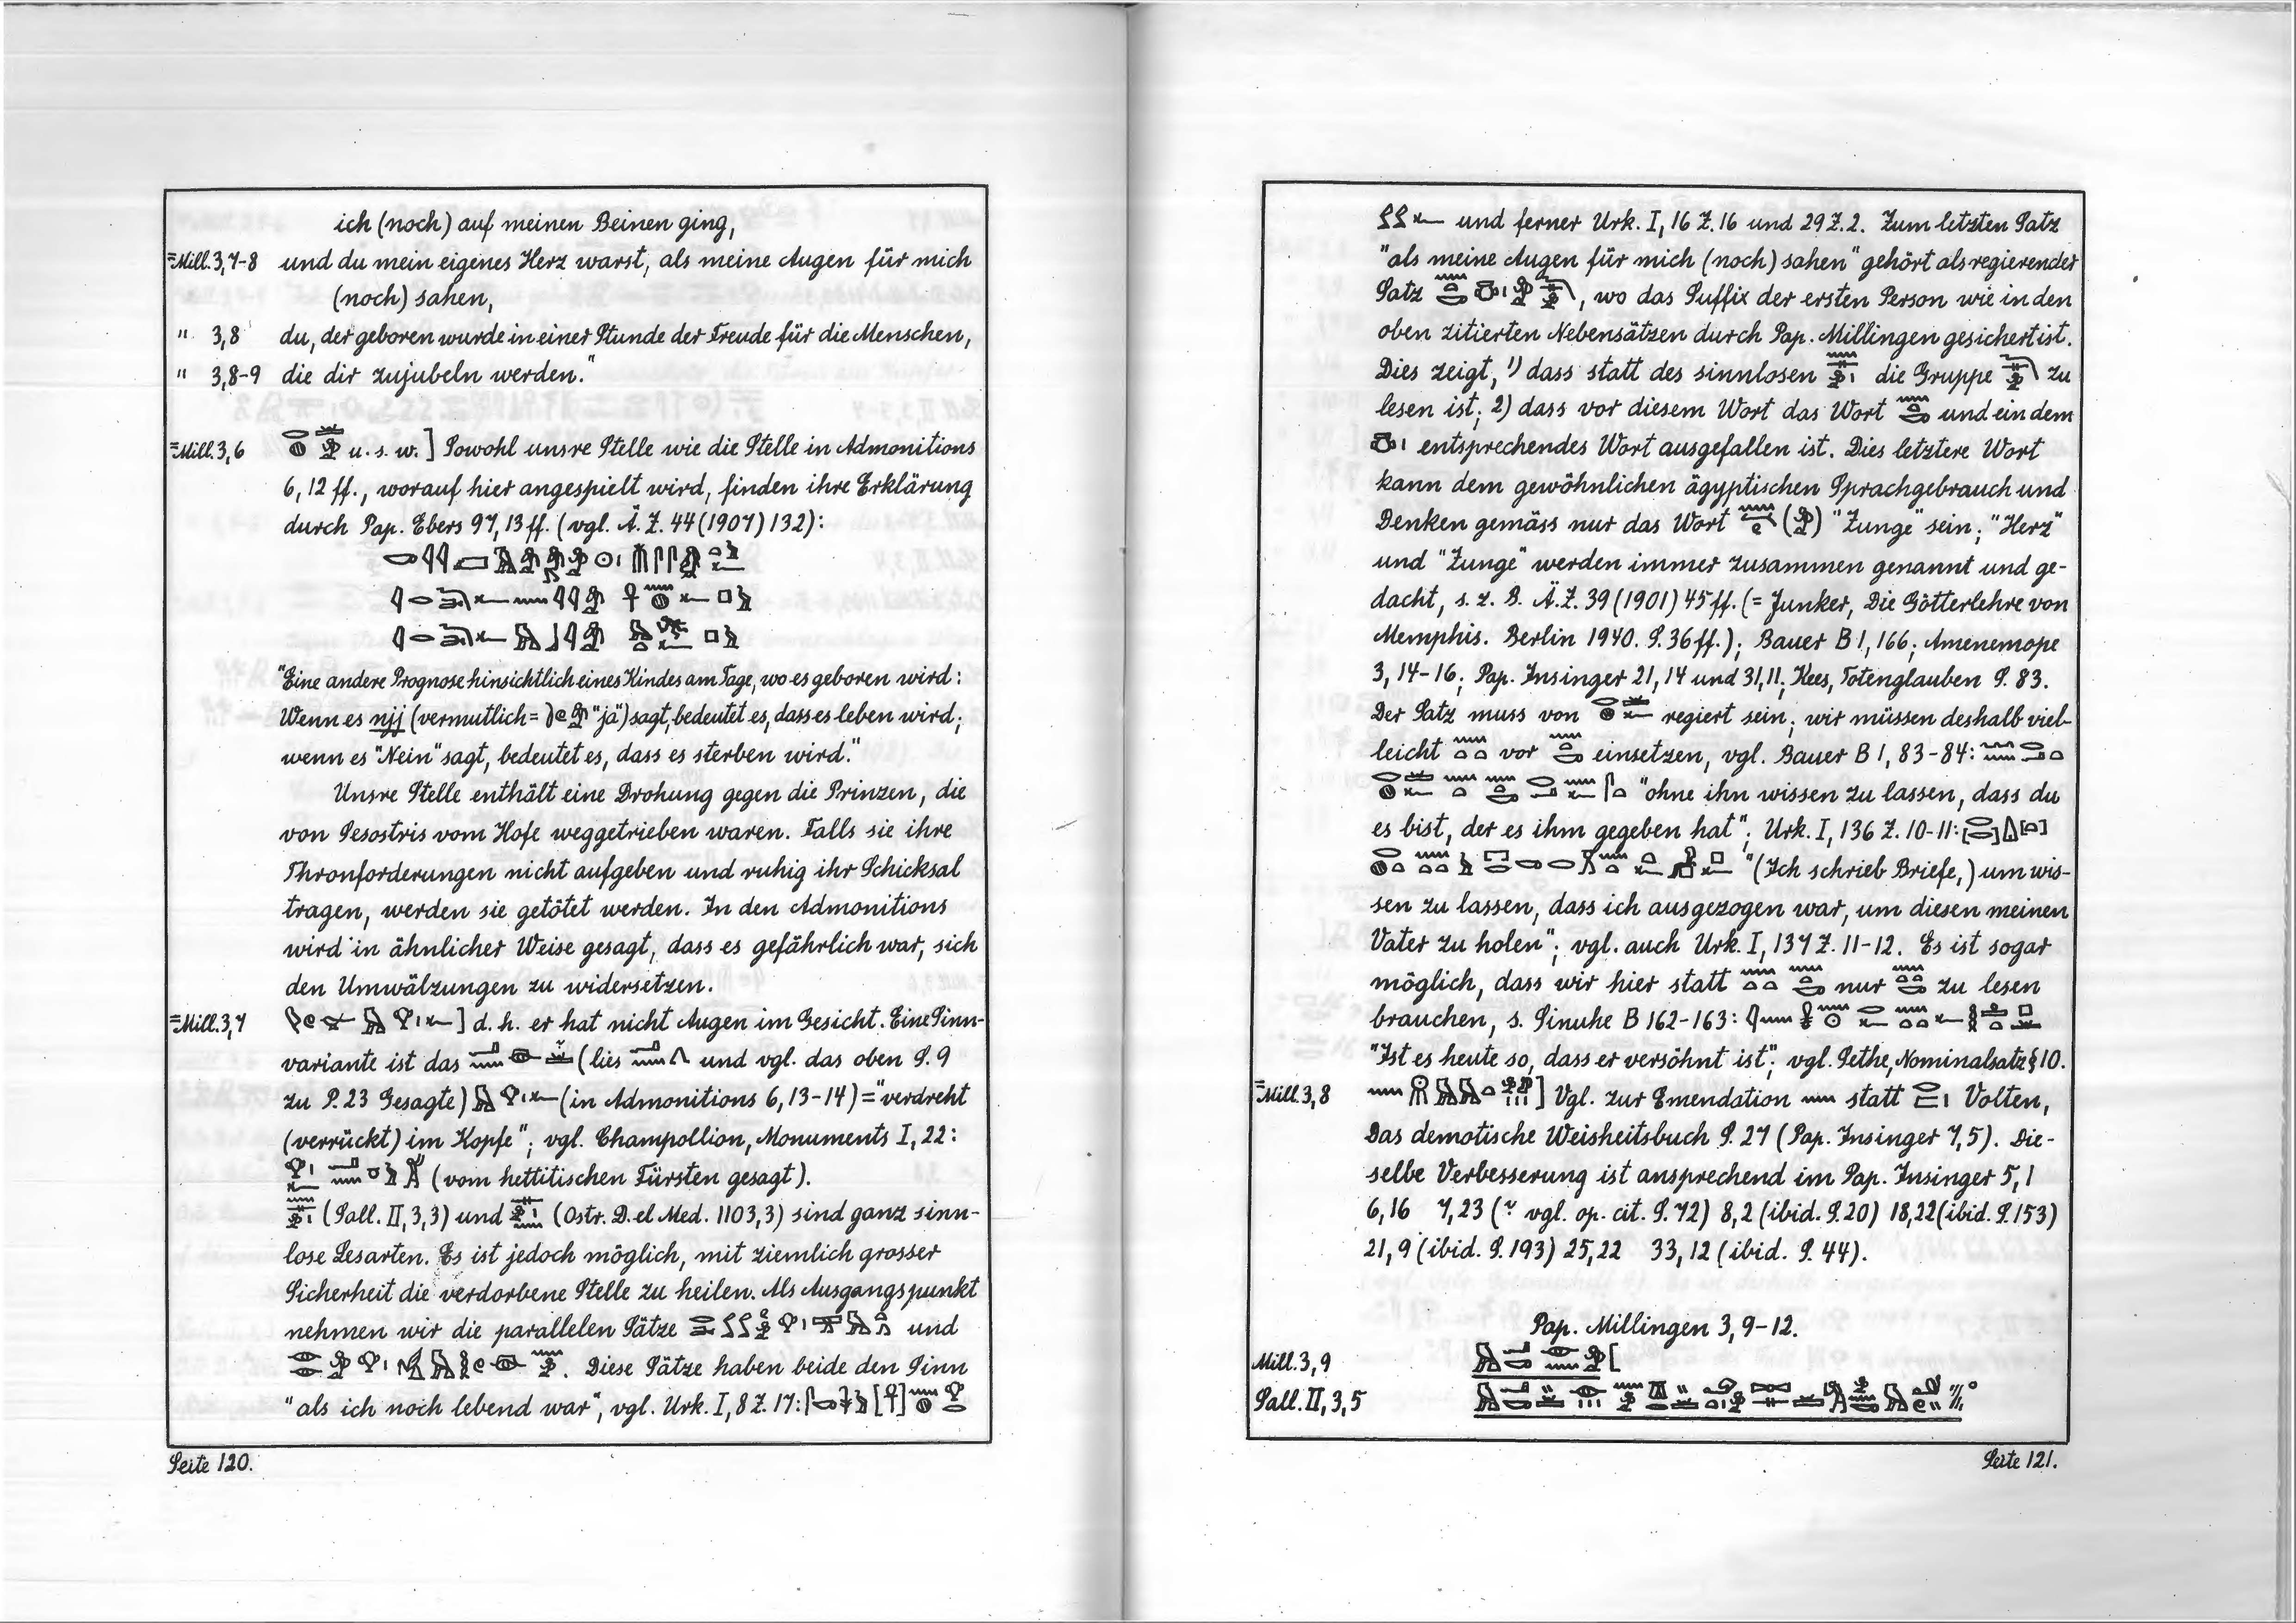 ich (noch) auf meinen Beinen ging,
=Mill. 3,7-8 und du mein eigenes Herz warst, als meine Augen für mich
(noch) sahen,
" 3,8 du, der geboren wurde in einer Stunde der Freude für die Menschen,
" 3,8-9 die dir zujubeln werden."
=Mill. 3,6 u. s. w. ] Sowohl unsre Stelle wie die Stelle in Admonitions
6, 12 ff., worauf hier angespielt wird, finden ihre Erklärung
durch Pap. Ebers 97, 13 ff. (vgl. Ä. Z. 44 (1907) 132):
"Eine andere Prognose hinsichtlich eines Kindes am Tage, wo es geboren wird:
Wenn es njj (vermutlich = "ja") sagt, bedeutet es, dass es leben wird;
wenn es "Nein" sagt, bedeutet es, dass es sterben wird."
Unsre Stelle enthält eine Drohung gegen die Prinzen, die
von Sesostris vom Hofe weggetrieben waren. Falls sie ihre
Thronforderungen nicht aufgeben und ruhig ihr Schicksal
tragen, werden sie getötet werden. In den Admonitions
wird in ähnlicher Weise gesagt, dass es gefährlich war, sich
den Umwälzungen zu widersetzen.
=Mill. 3,7 ] d. h. er hat nicht Augen im Gesicht. Eine Sinn-
variante ist das (lies und vgl. das oben S. 9
zu P. 23 Gesagte) (in Admonitions 6, 13-14) = "verdreht
(verrückt) im Kopfe"; vgl. Champollion, Monuments I, 22:
(vom hettitischen Fürsten gesagt).
(Sall. II, 3,3) und (Ostr. D. el Med. 1103,3) sind ganz sinn-
lose Lesarten. Es ist jedoch möglich, mit ziemlich grosser
Sicherheit die verdorbene Stelle zu heilen. Als Ausgangspunkt
nehmen wir die parallelen Sätze und
. Diese Sätze haben beide den Sinn
"als ich noch lebend war", vgl. Urk. I, 8 Z. 17:
Seite 120.
und ferner Urk. I, 16 Z. 16 und 29 Z. 2. Zum letzten Satz
"als meine Augen für mich (noch) sahen" gehört als regierender
Satz , wo das Suffix der ersten Person wie in den
oben zitierten Nebensätzen durch Pap. Millingen gesichert ist.
Dies zeigt, 1) dass statt des sinnlosen die Gruppe zu
lesen ist; 2) dass vor diesem Wort das Wort und ein dem
entsprechendes Wort ausgefallen ist. Dies letztere Wort
kann dem gewöhnlichen ägyptischen Sprachgebrauch und
Denken gemäss nur das Wort "Zunge" sein; "Herz"
und "Zunge" werden immer zusammen genannt und ge-
dacht, s. z. B. Ä. Z. 39 (1901) 45 ff. (= Junker, Die Götterlehre von
Memphis. Berlin 1940. S. 36 ff.); Bauer B 1, 166; Amenemope
3, 14-16; Pap. Insinger 21, 14 und 31, 11; Kees, Totenglauben S. 83.
Der Satz muss von regiert sein; wir müssen deshalb viel-
leicht vor einsetzen, vgl. Bauer B 1, 83-84:
"ohne ihn wissen zu lassen, dass du
es bist, der es ihm gegeben hat"; Urk. I, 136 Z. 10-11:
"(Ich schrieb Briefe,) um wis-
sen zu lassen, dass ich ausgezogen war, um diesen meinen
Vater zu holen"; vgl. auch Urk. I, 137 Z. 11-12. Es ist sogar
möglich, dass wir hier statt nur zu lesen
brauchen, s. Sinuhe B 162-163:
"Ist es heute so, dass er versöhnt ist"; vgl. Sethe, Nominalsatz § 10.
=Mill. 3,8 ] Vgl. zur Emendation statt Volten,
Das demotische Weisheitsbuch S. 27 (Pap. Insinger 7,5). Die-
selbe Verbesserung ist ansprechend im Pap. Insinger 5, 1
6,16 7,23 (vgl. op. cit. S. 72) 8,2 (ibid. S. 20) 18,22 (ibid. S. 153)
21,9 (ibid. S. 193) 25,22 33,12 (ibid. S. 44).
Pap. Millingen 3, 9-12.
Mill. 3,9
Sall. II, 3,5
Seite 121.